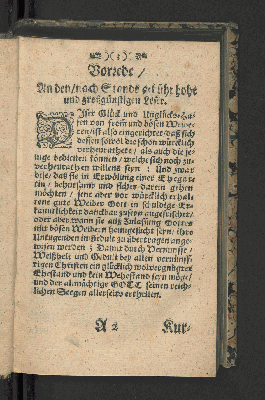 ( 1 )
Vorrede /
An den / nach Stands gebühr hohe
und großgünstigen Leser.
Dieser Glück und Unglücks-Ha-
fen von from und bösen Weibe-
ren / ist also eingerichtet / daß sich
dessen sowol die schon würcklich
verheurathete / als auch die je-
nige bedienen können / welche sich noch zu
verheurathen willens seyn: Und zwar
diese / daß sie in Erwöhlung einer Ehegat-
tin / behutsamb und sicher darein gehen
möchten / jene aber vor würcklich erhal-
tene gute Weiber Gott in schuldige
danckbar zuseyn angefrischet /
oder aber wann sie auß Zulassung Gottes
mit bösen Weibern heimgesucht seyn / ihre
Untugenden in Gedult zu übertragen ange-
wisen werden; Damit durch Vernunfft /
Weißheit und Gedult bey allen vernünff-
tigen Christen ein glücklich wolvergnügter
Ehestand und kein Wehestand seyn möge /
und der allmächtige GOTT seinen reich-
lichen Seegen allerseits ertheilen.
A 2
Kur-